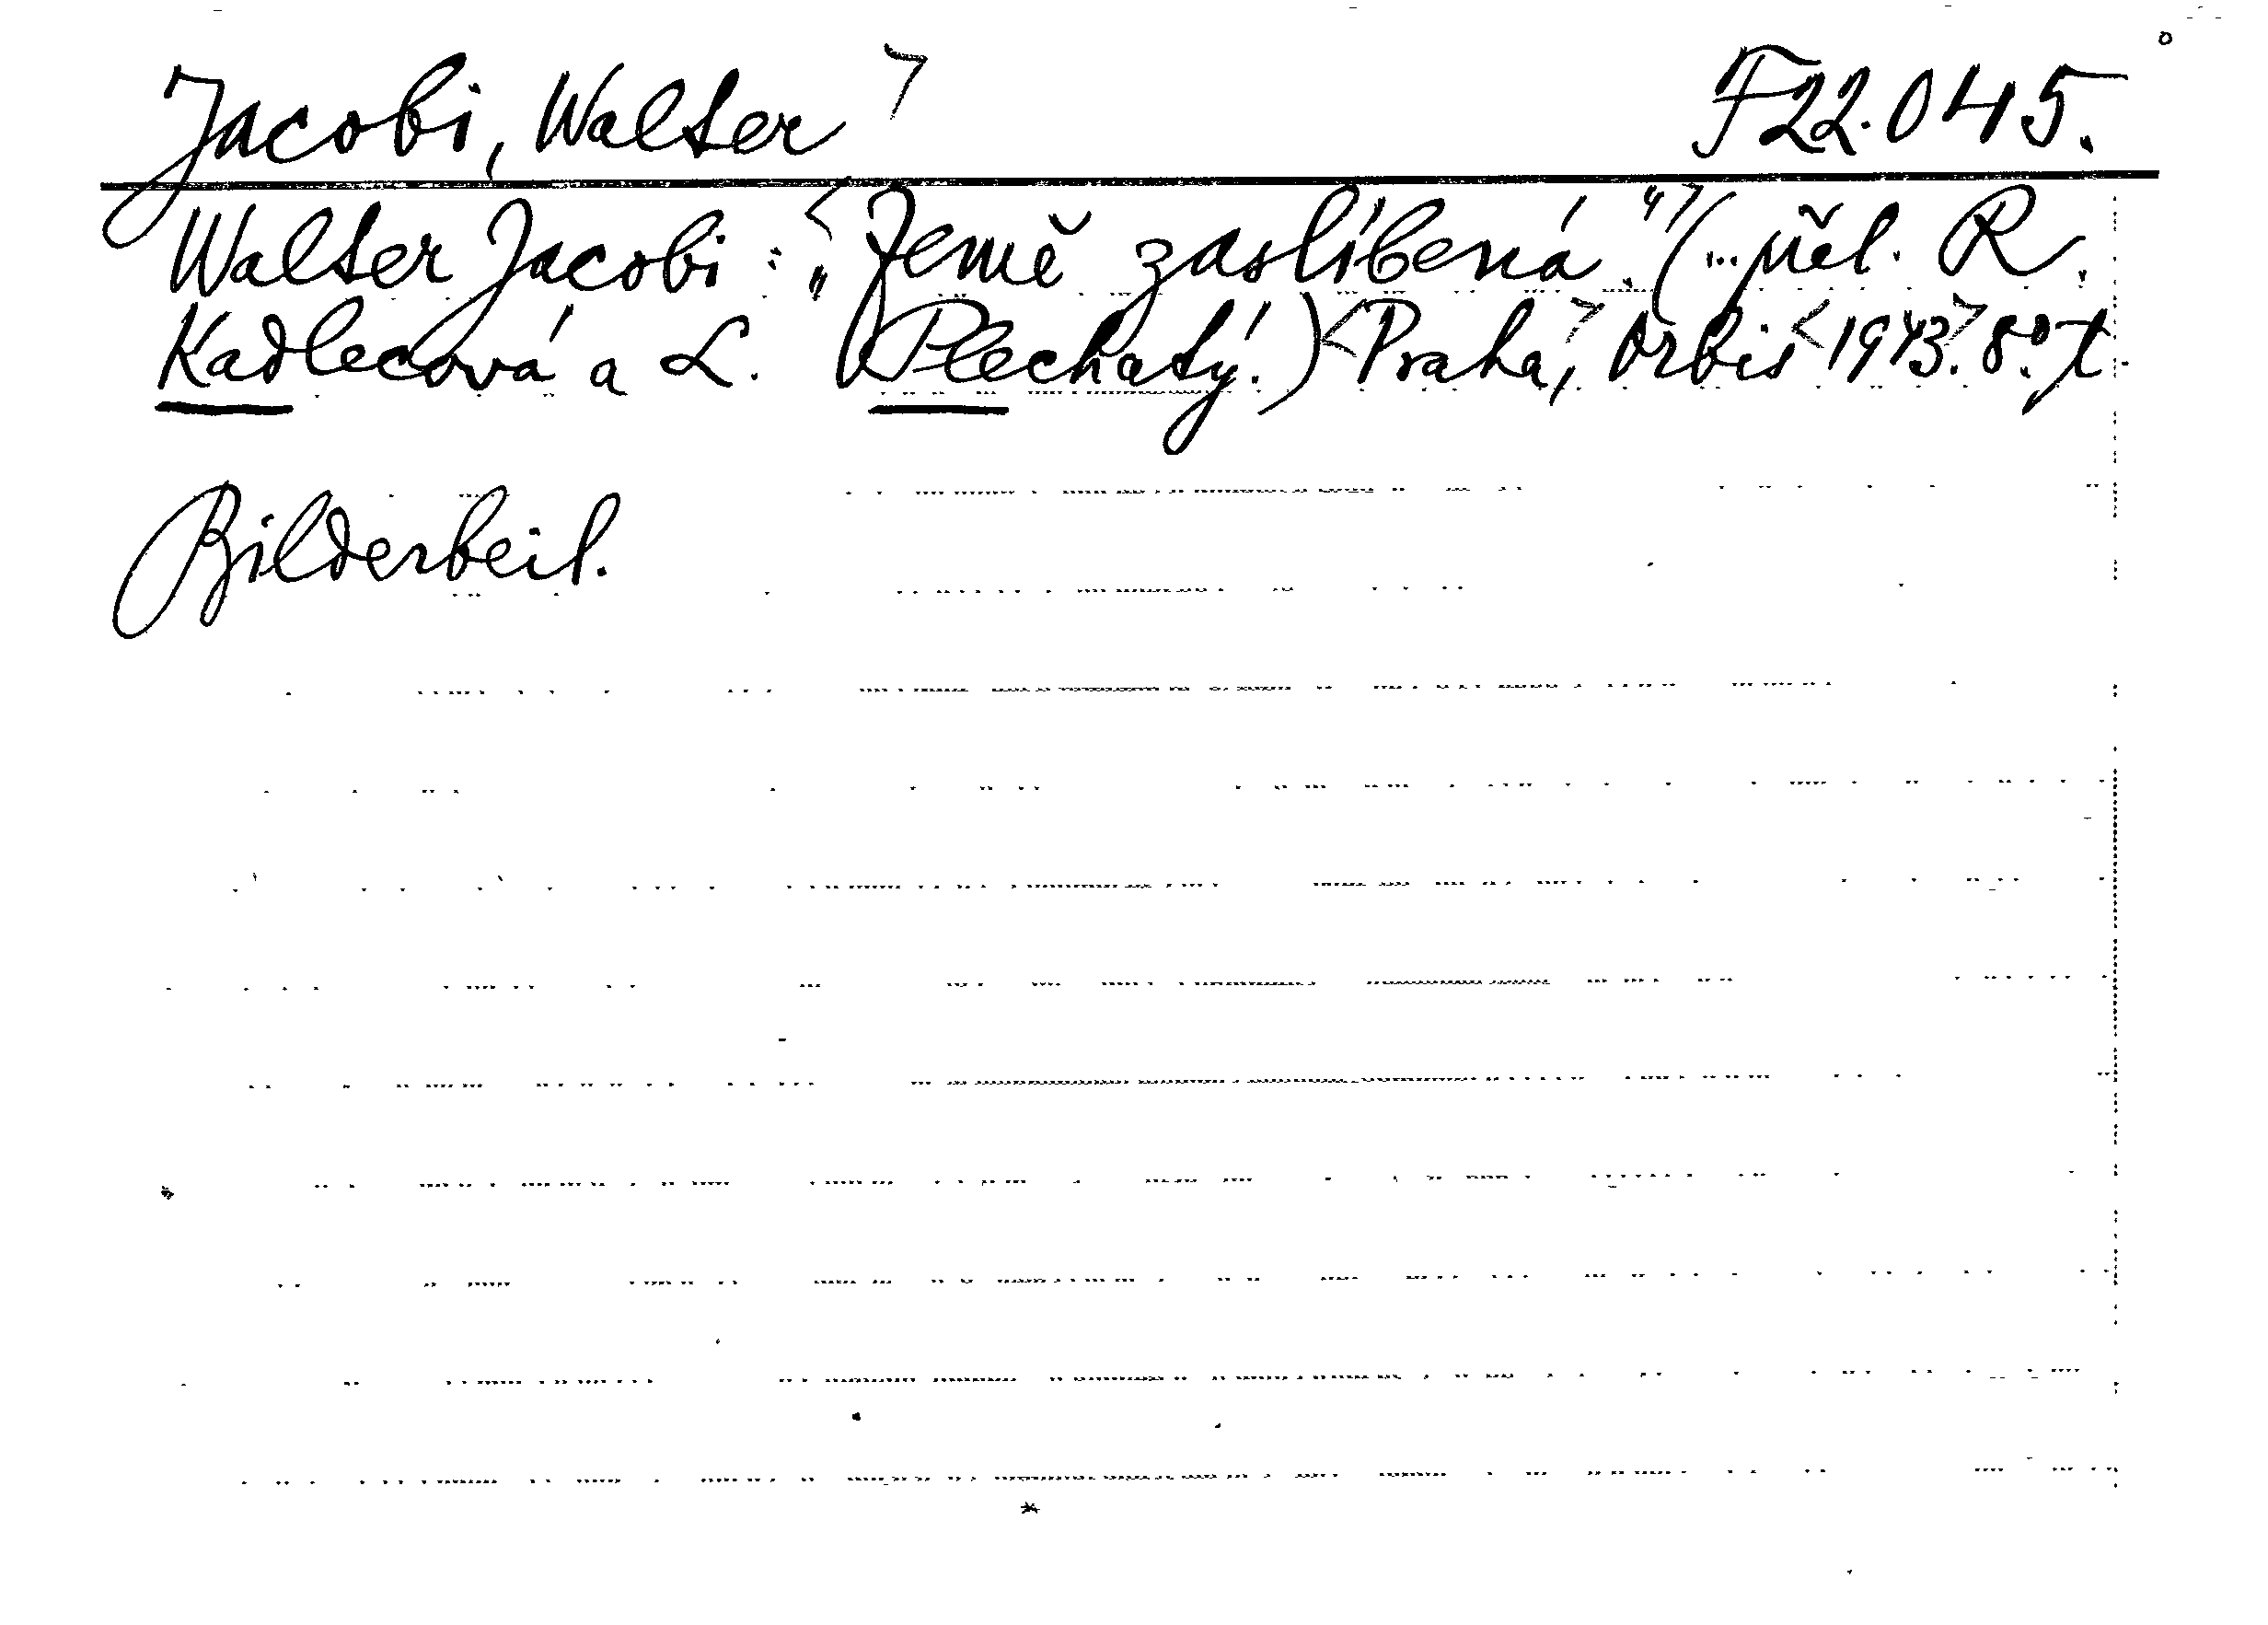 Jacobi, Walter > F22.045.
Walter Jacobi: <„Země zaslíbená.“> (...přel. R.
Kadlecová a L. Plechatý.) <Praha,> Orbis <1943.> 8°. t
Bilderbeil.